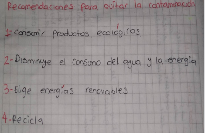 Recomendaciones para evitar la contaminación
1-consumir productos ecológicos
2-Disminuye el consumo del agua y la energia
3-Elige energias renovables
4-Recicla